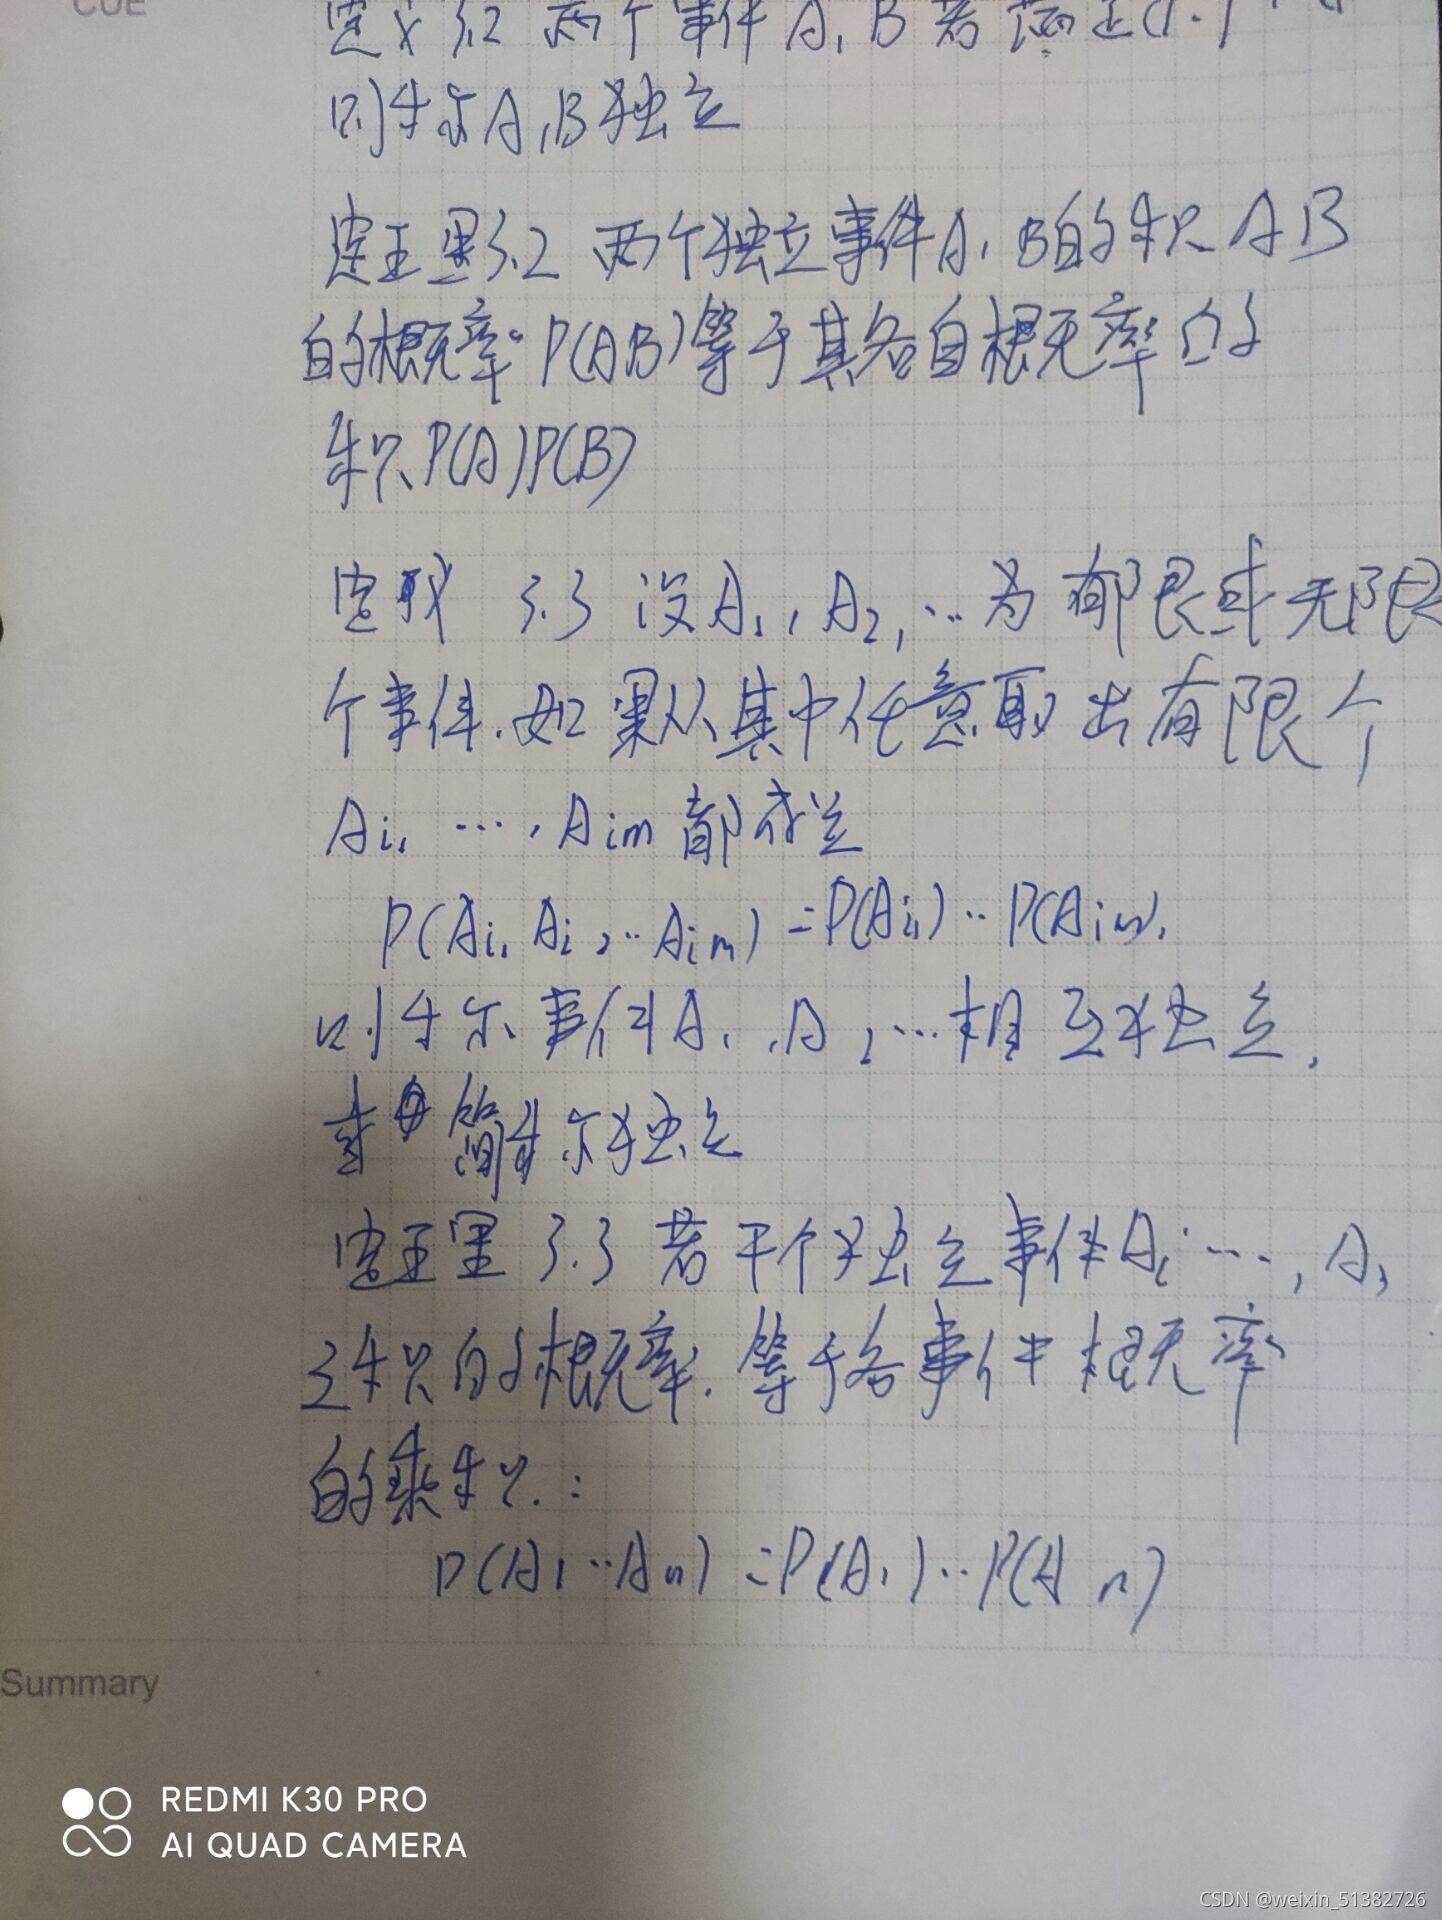 CUE
定义 3.2 两个事件 A, B 若满足
则称 A, B 独立
定理 3.2 两个独立事件 A, B 的积 AB
的概率 P(AB) 等于其各自概率的
积 P(A)P(B)
定义 3.3 设 A1, A2, … 为有限或无限
个事件. 如果从其中任意取出有限个
Ai1 … , Aim 都成立
P(Ai1 Ai2 … Aim) = P(Ai1) … P(Aim).
则称事件 A1, A2 … 相互独立,
简称独立
定理 3.3 若干个独立事件 Ai …, A,
之积的概率. 等于各事件 概率
的乘积 :
P(A1 … An) = P(A1) … P(An)
Summary
REDMI K30 PRO
AI QUAD CAMERA
CSDN @weixin_51382726